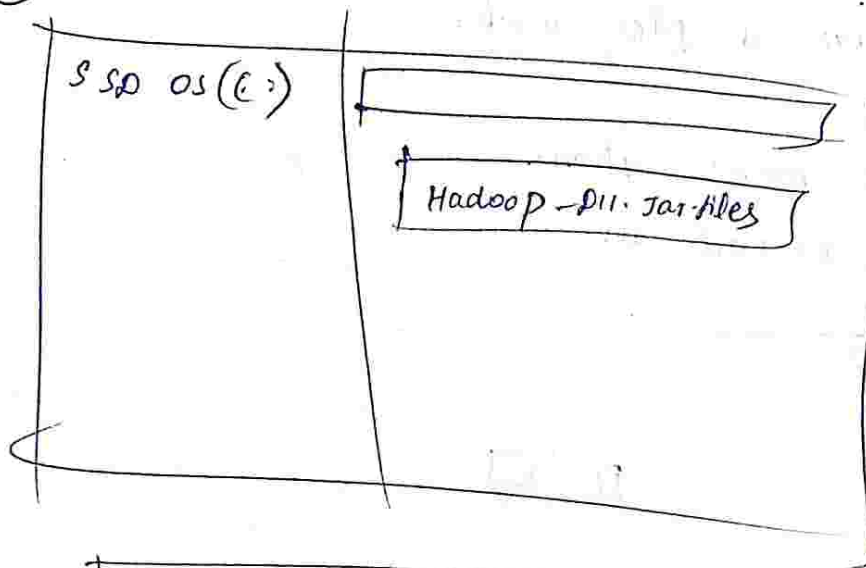 SSD OS (C:)
Hadoop-Dll. Jar.files